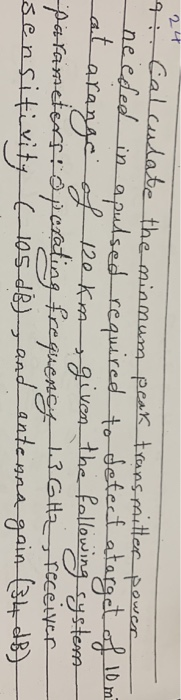 24
9: Calculate the minmum peak transmitter power
needed in apulsed required to detect atarget of 10m
at arange of 120 Km, given the following system
parameters: Operating frequency 1.3 GHz, receiver
sensitivity (-105 dB), and antenna gain (34 dB)